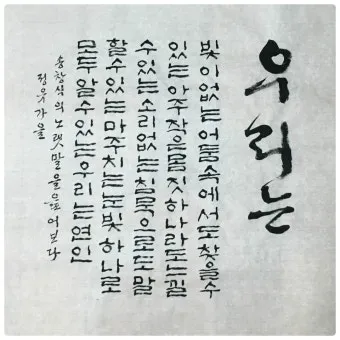 우리는
빛이 없는 어둠속에서도 찾을수
있는 아주 작은 몸짓 하나라도 느낄
수 있는 소리없는 침묵으로도 말
할 수 있는 마주치는 눈빛 하나로
모두 알 수 있는 우리는 연인
송창식의 노랫말을
정유가을